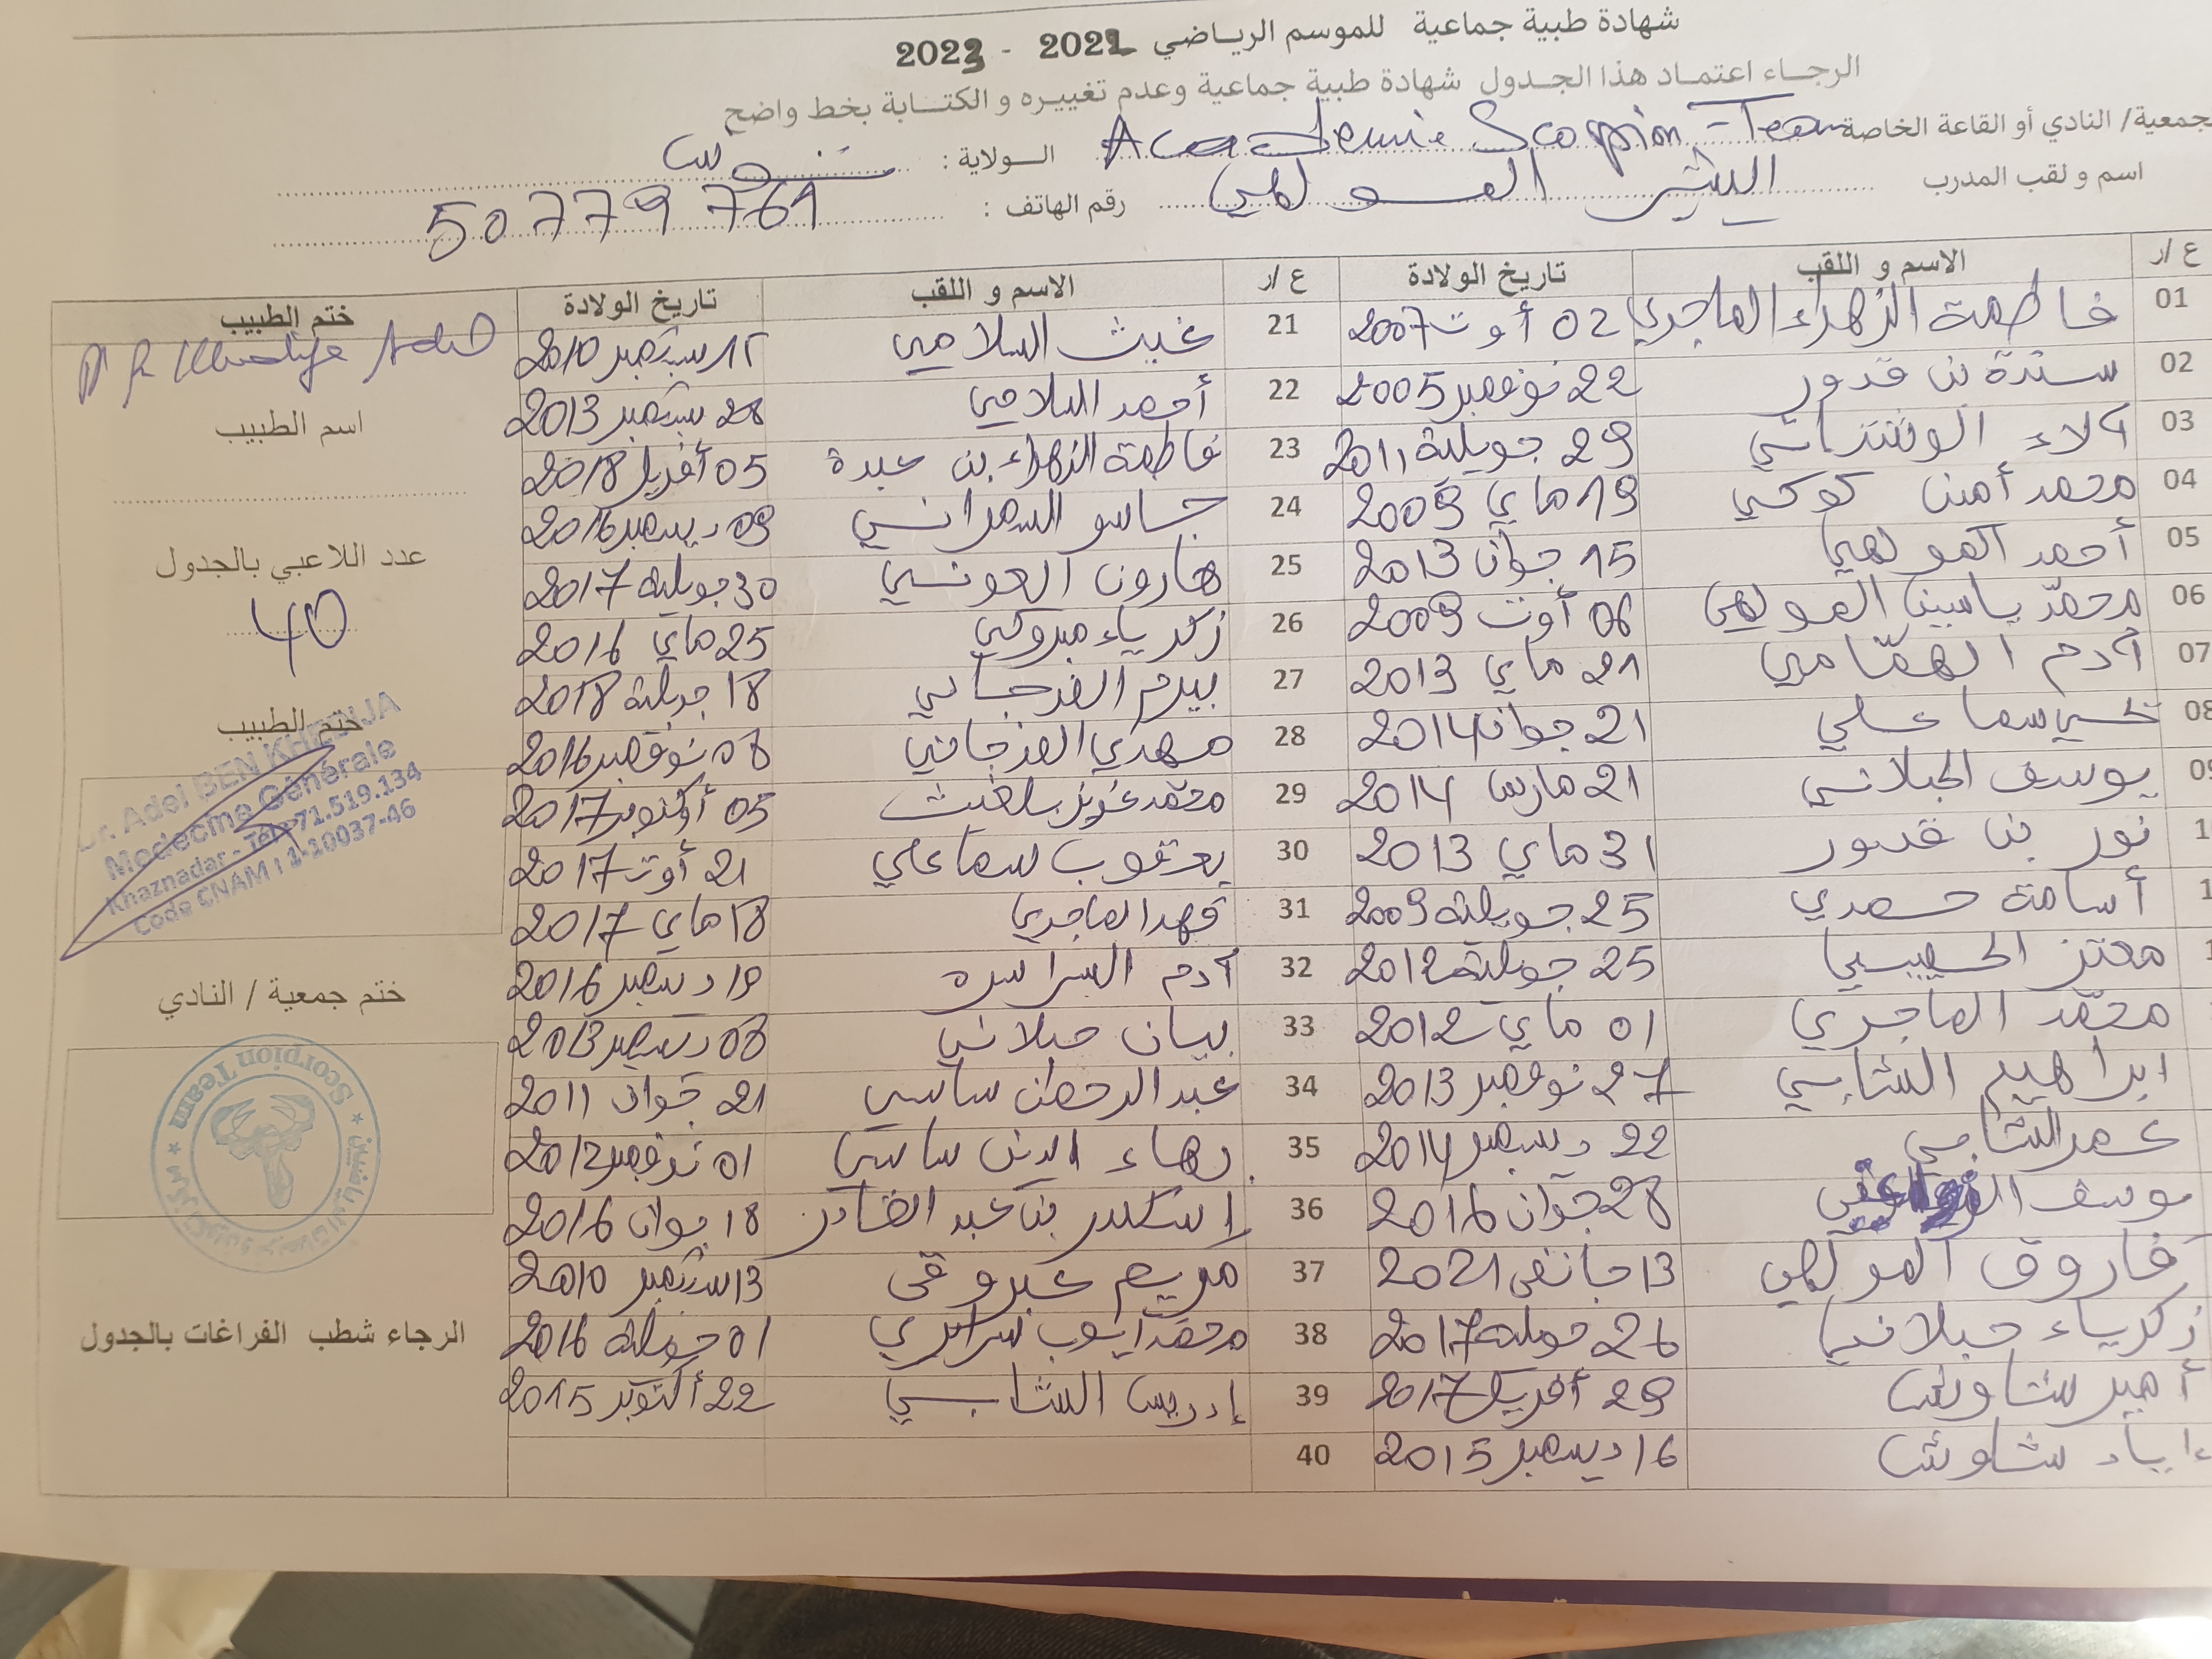 شهادة طبية جماعية للموسم الرياضي 2022 - 2023
الرجاء اعتماد هذا الجدول شهادة طبية جماعية وعدم تغييره و الكتابة بخط واضح
جمعية/ النادي أو القاعة الخاصة Academie Scorpion - Team الولاية : تونس
اسم و لقب المدرب البشير المولهي رقم الهاتف : 50779761
ع /ر الاسم و اللقب تاريخ الولادة ع /ر الاسم و اللقب تاريخ الولادة ختم الطبيب
01 فاطمة الزهراء الماجري 02 أوت 2007 21 غيث السلامي سبتمبر 2010
02 سندة بن قدور 22 نوفمبر 2005 22 أحمد السلامي 28 سبتمبر 2013
03 ألاء الوشتاتي 29 جويلية 2011 23 فاطمة الزهراء بن عبدة 05 أفريل 2018
04 محمد أمين كوكي 19 ماي 2009 24 السمراني 09 ديسمبر 2016
05 أحمد المولهي 15 جوان 2013 25 هارون العونسي 30 جويلية 2017
06 محمّد ياسين المولهي 06 أوت 2009 26 زكرياء مبروكي 25 ماي 2016
07 آدم الهمّامي 21 ماي 2013 27 بيرم الفرجاني 18 جويلية 2018
08 سماعلي 21 جوان 2014 28 مهدي الفرجاني 08 نوفمبر 2016
يوسف الجبلاني 21 مارس 2014 29 محمّد عزيز بلغيث 05 أكتوبر 2017
نور بن قدور 31 ماي 2013 30 يعقوب سماعلي 21 أوت 2017
أسامة حمدي 25 جويلية 2009 31 فهد الماجري 18 ماي 2017
معتز الحبيبي 25 جويلية 2012 32 آدم 19 ديسمبر 2016
محمّد الماجري 01 ماي 2012 33 بيان جبلاني 08 ديسمبر 2013
ابراهيم الشابي 27 نوفمبر 2013 34 عبد الرحمان ساسي 21 جوان 2011
عمر الشابي 22 ديسمبر 2014 35 بهاء الدين ساسي 01 نوفمبر 2012
يوسف 28 جوان 2016 36 إسكندر بن عبد القادر 18 جوان 2016
فاروق المولهي 13 جانفي 2021 37 مريم عبروقي 13 سبتمبر 2010
زكرياء جبلاني 26 جويلية 2017 38 محمّد أيوب 01 جويلية 2016
أمير شاوش 29 أفريل 2017 39 إدريس الشابي 22 أكتوبر 2015
إياد شاوش 16 ديسمبر 2015 40
اسم الطبيب
عدد اللاعبي بالجدول
40
ختم الطبيب
Dr. Adel BEN KHEDIJA
Médecine Générale
Khaznadar - Tél: 71.519.134
Code CNAM : 1-10037-46
ختم جمعية / النادي
Scorpion Team
الرجاء شطب الفراغات بالجدول